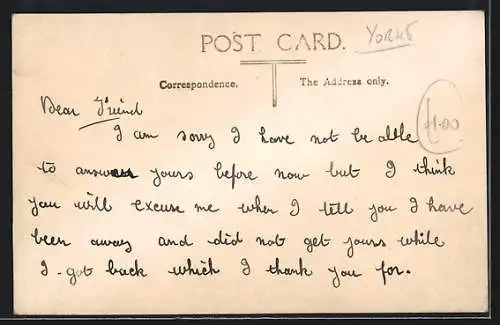 POST CARD.
YORKS
Correspondence.
The Address only.
£1.00
Dear Friend
I am sorry I have not be able
to answer yours before now but I think
you will excuse me when I tell you I have
been away and did not get yours while
I got back which I thank you for.